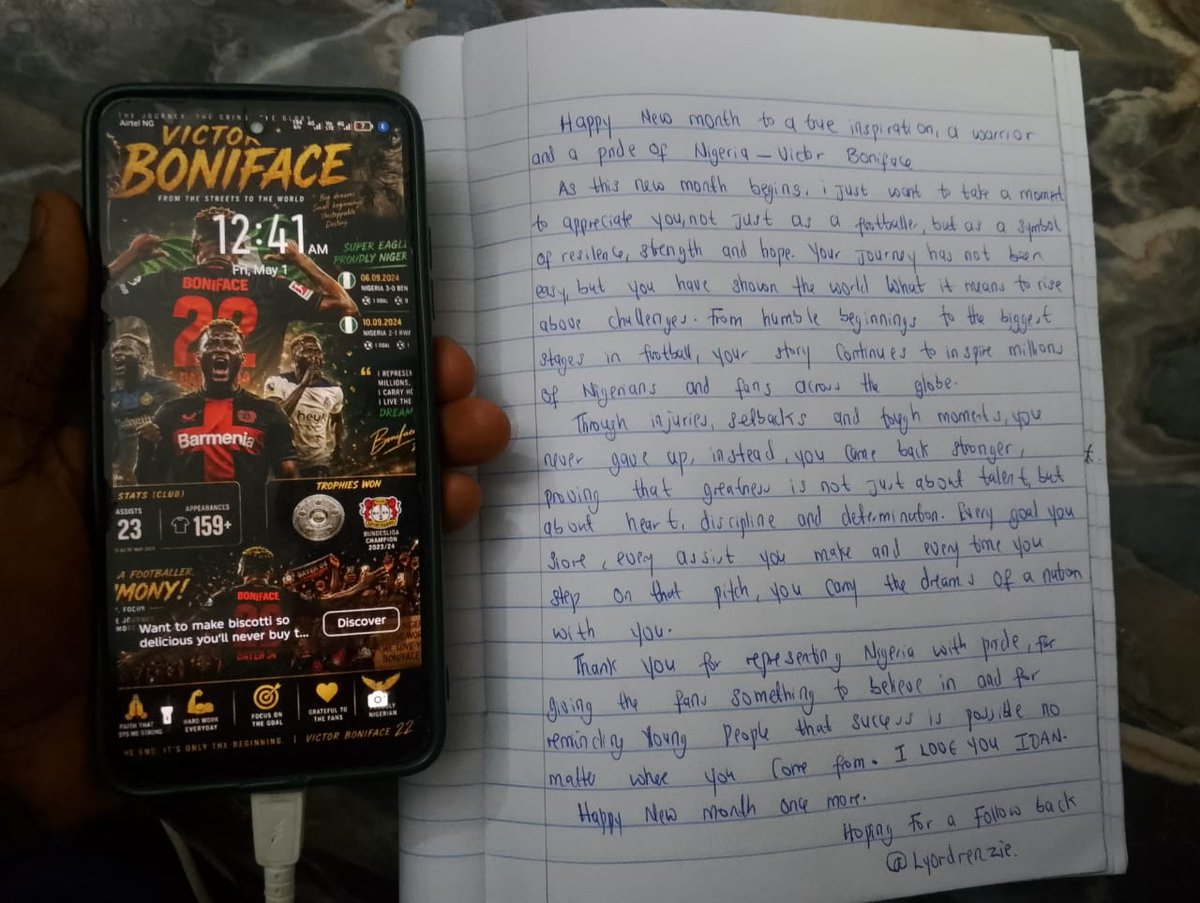 THE JOURNEY. THE GRIND. THE GLORY
Airtel NG
VICTOR
BONIFACE
FROM THE STREETS TO THE WORLD
Big dreams
Small beginnings
Unstoppable
Destiny
12:41 AM
Fri, May 1
SUPER EAGL
PROUDLY NIGER
BONIFACE
22
06.09.2024
NIGERIA 3-0 BEN
1 GOAL
10.09.2024
NIGERIA 2-1 RWA
1 GOAL
I REPRESEN
MILLIONS.
I CARRY HO
I LIVE THE
DREAM
Boniface
Barmenia
heyt
STATS (CLUB)
ASSISTS
23
APPEARANCES
159+
TROPHIES WON
BUNDESLIGA
CHAMPION
2023/24
A FOOTBALLER,
MONY!
FOCUS
BONIFACE
Want to make biscotti so
delicious you'll never buy t...
Discover
WE LOVE Y
BONIFACE
FAITH THAT
EPS ME STRONG
HARD WORK
EVERYDAY
FOCUS ON
THE GOAL
GRATEFUL TO
THE FANS
NIGERIAN
HE END, IT'S ONLY THE BEGINNING. | VICTOR BONIFACE 22
Happy New month to a true inspiration, a warrior
and a pride of Nigeria – Victor Boniface
As this new month begins, i just want to take a moment
to appreciate you, not just as a footballer, but as a symbol
of resilence, strength and hope. Your journey has not been
easy, but you have shown the world what it means to rise
above challenges. From humble beginnings to the biggest
stages in football, your story continues to inspire millions
of Nigerians and fans across the globe.
Through injuries, setbacks and tough moments, you
never gave up, instead, you came back stronger,
proving that greatness is not just about talent, but
about heart, discipline and determination. Every goal you
score, every assist you make and every time you
step on that pitch, you carry the dreams of a nation
with you.
Thank you for representing Nigeria with pride, for
giving the fans something to believe in and for
reminding young people that success is possible no
matter where you come from. I LOVE YOU IDAN.
Happy New month once more.
Hoping For a Follow back
@Lyordrenzie.